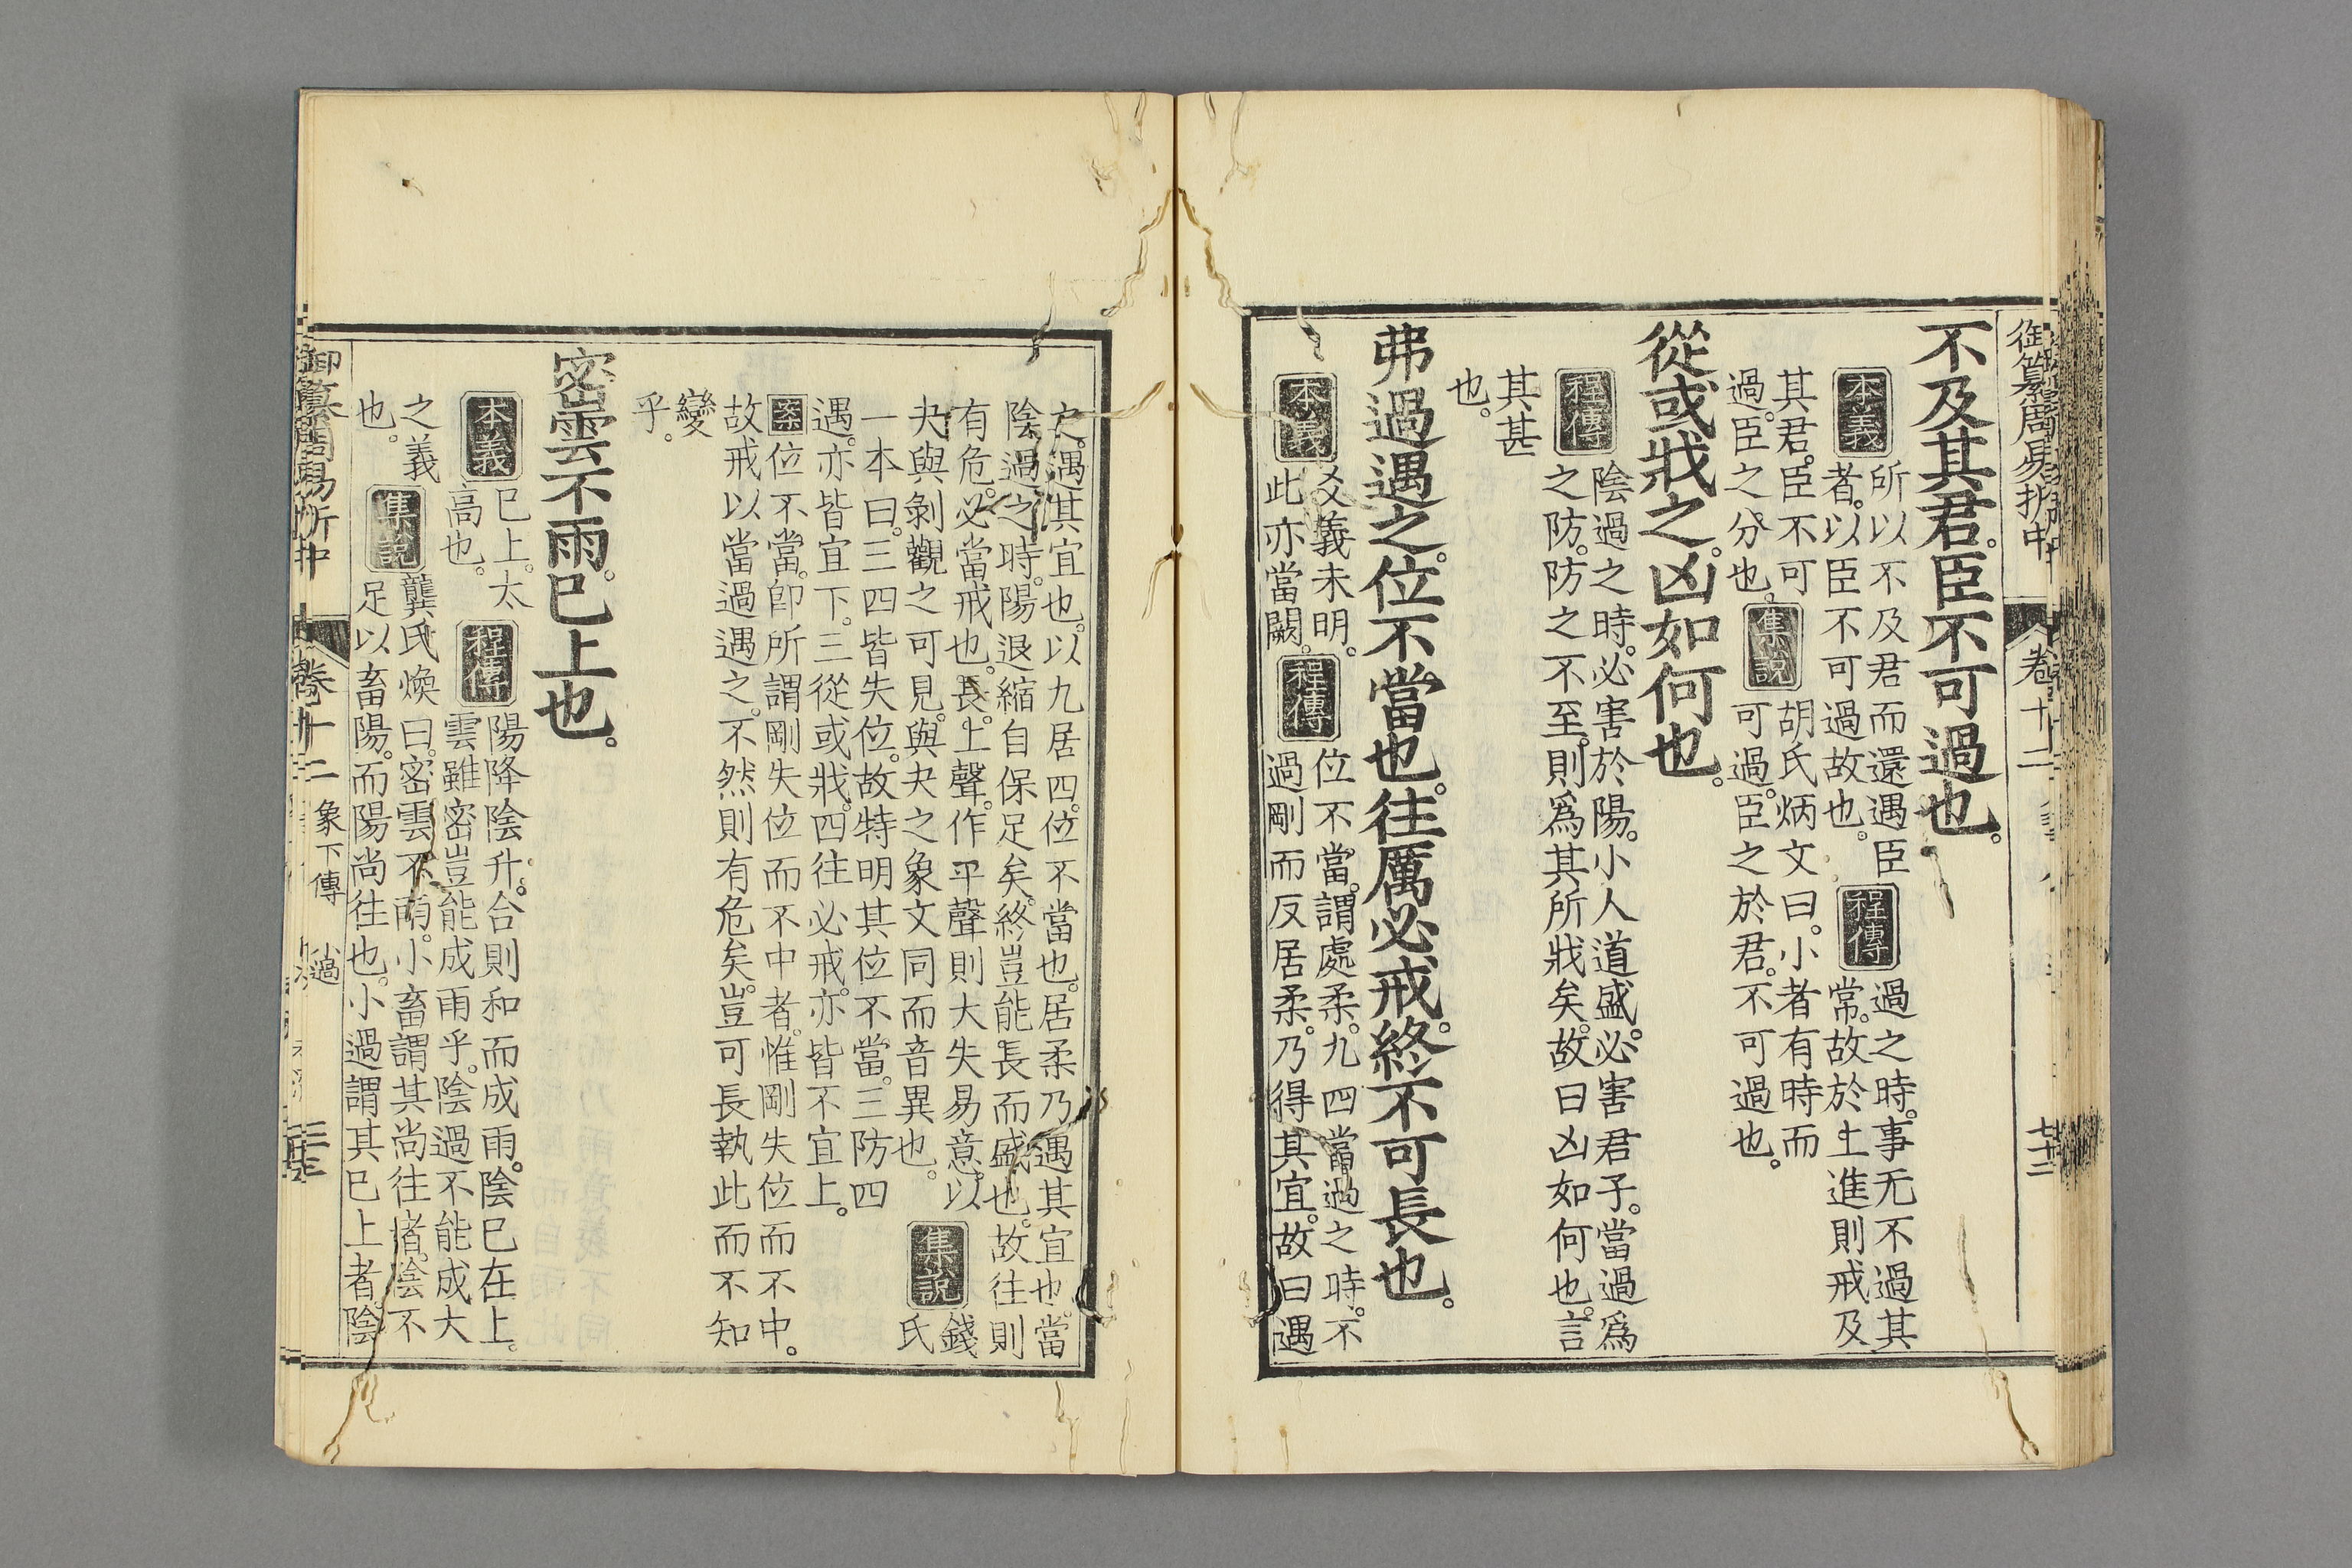 御纂周易折中 卷十二
不及其君。臣不可過也。
本義 所以不及君而還遇臣 程傳 過之時。事无不過其
者。以臣不可過故也。 常。故於上進則戒及
其君。臣不可 集說 胡氏炳文曰。小者有時而
過臣之分也。 可過。臣之於君。不可過也。
從或戕之。凶如何也。
程傳 陰過之時。必害於陽。小人道盛。必害君子。當過爲
之防。防之不至。則爲其所戕矣。故曰凶如何也。言
其甚
也。
弗過遇之。位不當也。往厲必戒。終不可長也。
本義 爻義未明。 程傳 位不當。謂處柔。九四當過之時。不
此亦當闕。 過剛而反居柔。乃得其宜。故曰遇
之。遇其宜也。以九居四。位不當也。居柔乃遇其宜也。當
陰過之時。陽退縮自保足矣。終豈能長而盛也。故往則
有危。必當戒也。長。上聲。作平聲則大失易意。以 集說 錢
夬與剝觀之可見。與夬之象文同而音異也。 氏
一本曰。三四皆失位。故特明其位不當。三防四
遇。亦皆宜下。三從或戕。四往必戒。亦皆不宜上。
案 位不當。卽所謂剛失位而不中者。惟剛失位而不中。
故戒以當過遇之。不然則有危矣。豈可長執此而不知
變
乎。
密雲不雨。已上也。
本義 已上。太 程傳 陽降陰升。合則和而成雨。陰已在上。
高也。 雲雖密。豈能成雨乎。陰過不能成大
之義 集說 龔氏煥曰。密雲不雨。小畜謂其尚往者。陰不
也。 足以畜陽。而陽尚往也。小過謂其已上者。陰
御纂周易折中 卷十二 象下傳 小過